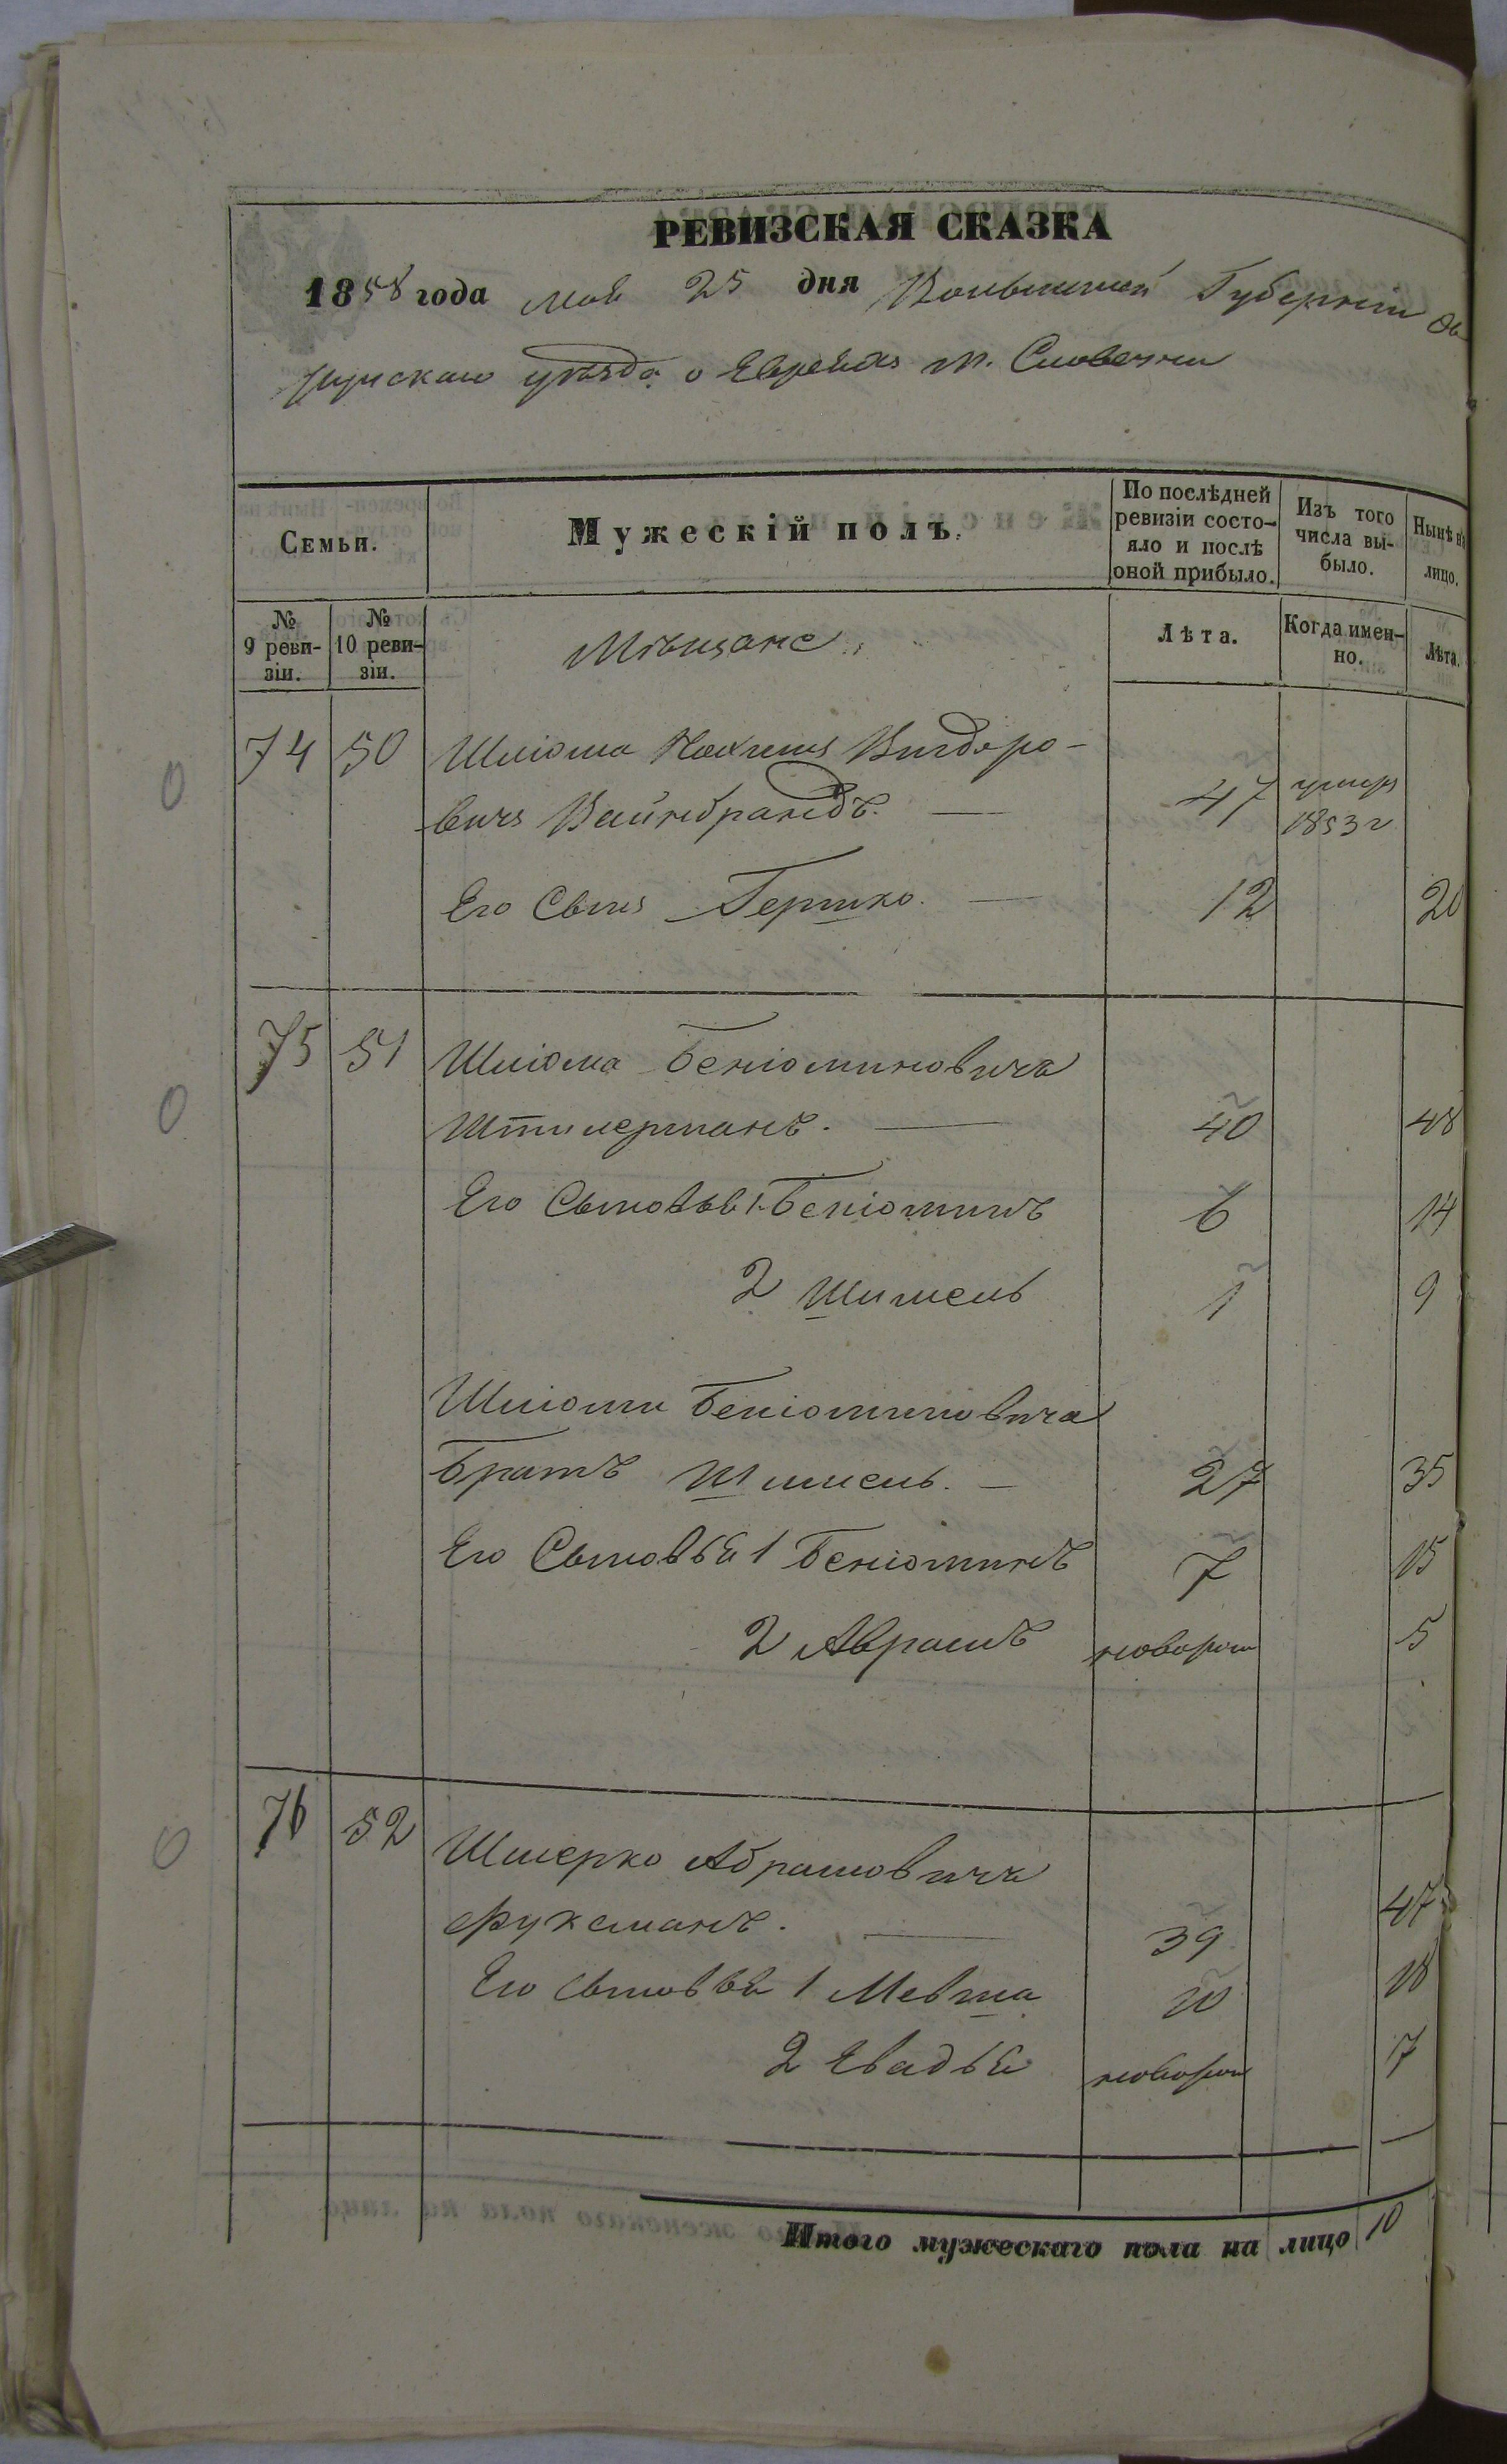 РЕВИЗСКАЯ СКАЗКА
1858 года мая 25 дня Волынской Губерніи Ов
ручскаго уѣзда о Евреяхъ м. Словечни
Семьи.
Мужескій полъ.
По послѣдней ревизіи состо-яло и послѣ оной прибыло.
Изъ того числа вы-было.
Нынѣ на лицо.
№ 9 реви-зіи.
№ 10 реви-зіи.
Мѣщане
Лѣта.
Когда имен-но.
Лѣта.
74 50 Шліома Нахимъ Вигдоро-
вичъ Вайнбрандъ. — 47 умеръ 1853 г
Его Сынъ Гершко. — 12 20
75 51 Шліома Беніоминовичъ
Штилерманъ. — 40 48
Его Сыновья 1. Беніоминъ 6 14
2 Шимель 1 9
Шліомы Беніоминовича
Братъ Шмиель. — 27 35
Его Сыновья 1 Беніоминъ 7 15
2 Аврамъ новорож 5
76 52 Шмерко Абрамовичъ
Фуксманъ. — 39 47
Его Сыновья 1 Мевша 10 18
2 Евадья новорож 7
Итого мужескаго пола на лицо 10